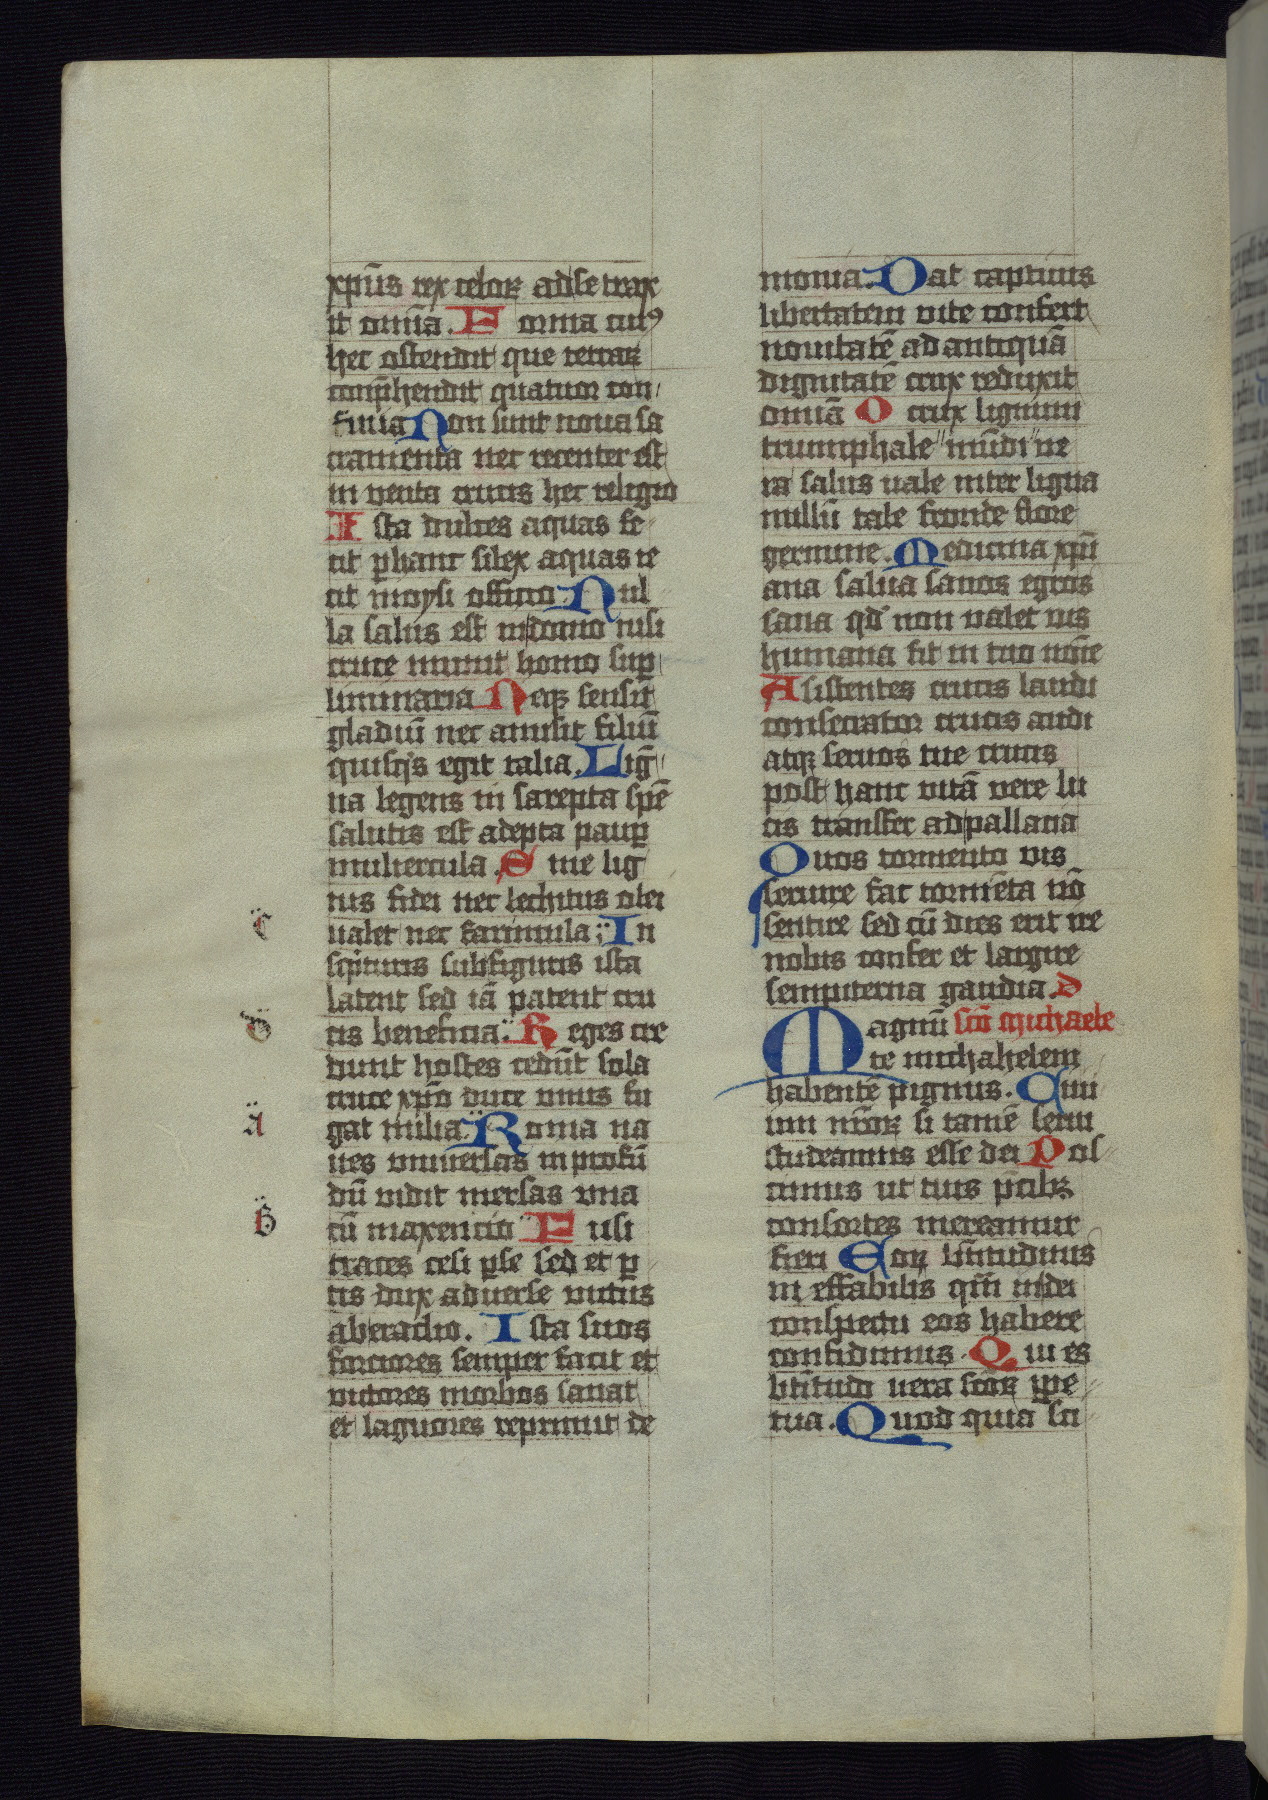 xpūs rex celoꝝ ad se trax
it om̄ia. Forma cruꝰ
hec ostendit que terraꝝ
comp̄hendit quatuor con
finia Non sunt noua sa
cramenta nec recenter est
in uenta crucis hec religio
Ista dulces aquas fe
cit p hanc silex aquas ie
cit moysi officio. Nul
la salus est in domo nisi
cruce munit homo suꝑ
liminaria Neqꝫ sensit
gladiū nec amisit filiū
quisqꝫs egit talia. Lig̅
na legens in sarepta spē
salutis est adepta pauꝑ
muliercula. Sine lig
nis fidei nec lechitus olei
ualet nec farinula; In
sc̄pturis subfiguris ista
latent sed iā patent cru
cis beneficia. Reges cre
dunt hostes cedūt sola
cruce xp̄o duce unus fu
gat milia. Roma na
ues vniuersas in profū
dū vidit mersas vna
cū maxencio Fusi
traces cesi ꝑse sed et ꝑ
tis dux aduerse uictus
ab eraclio. Ista suos
forciores semper facit et
uictores morbos sanat
et laguores reprimit de
monia. Dat captiuis
libertatem vite confert
nouitatē ad antiquā
dignitatē crux reduxit
omiā O crux lignum
triumphale mūdi ue
ra salus uale inter ligna
nullū tale fronde flore
germine. Medicina xp̄i
ana salua sanos egros
sana qd̄ non ualet uis
humana fit in tuo nōīe
Asistentes crucis laudi
consecrator crucis audi
atqꝫ seruos tue crucis
post hanc vitā vere lu
cis transfer ad pallacia
Quos tormento vis
seruire fac tormēta nō
sentire sed cū dies erit ire
nobis confer et largire
sempiterna gaudia. D
Magnū scō michaele
te michahelem
habentē pignus. Qui
um nr̄oꝝ si tamē serui
studeamus esse dei Pos
cimus ut tuis p̄cibꝫ
consortes mereamur
fieri Eoꝝ bt̄itudinis
in effabilis qm̄ in dei
conspectu eos habere
confidimus. Qui es
btītudo uera scōꝝ ꝑpe
tua. Quod quia sci
C
D
A
B